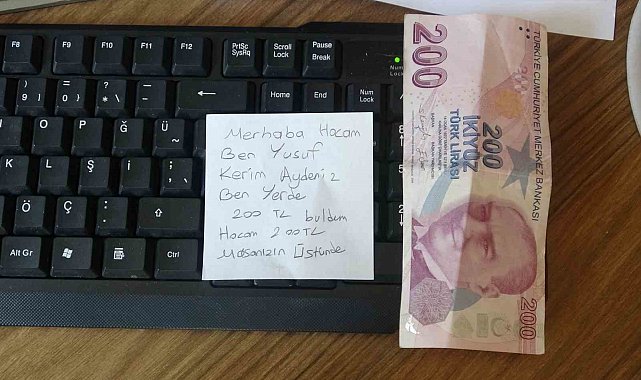 F8
F9
F10
F11
F12
PrtSc
SysRq
Scroll
Lock
Pause
Break
Num
Lock
Home
End
Num
Lock
)
9
=
0
?
*
-
O
P
Ğ
Ü
Ş
İ
Ö
Ç
:
.
Alt Gr
Ctrl
Merhaba Hocam
Ben Yusuf
Kerim Aydeniz
Ben Yerde
200 TL buldum
Hocam 200TL
Masanızın Üstünde
200
200
İKİYÜZ
TÜRK LİRASI
TÜRKİYE CUMHURİYET MERKEZ BANKASI
200